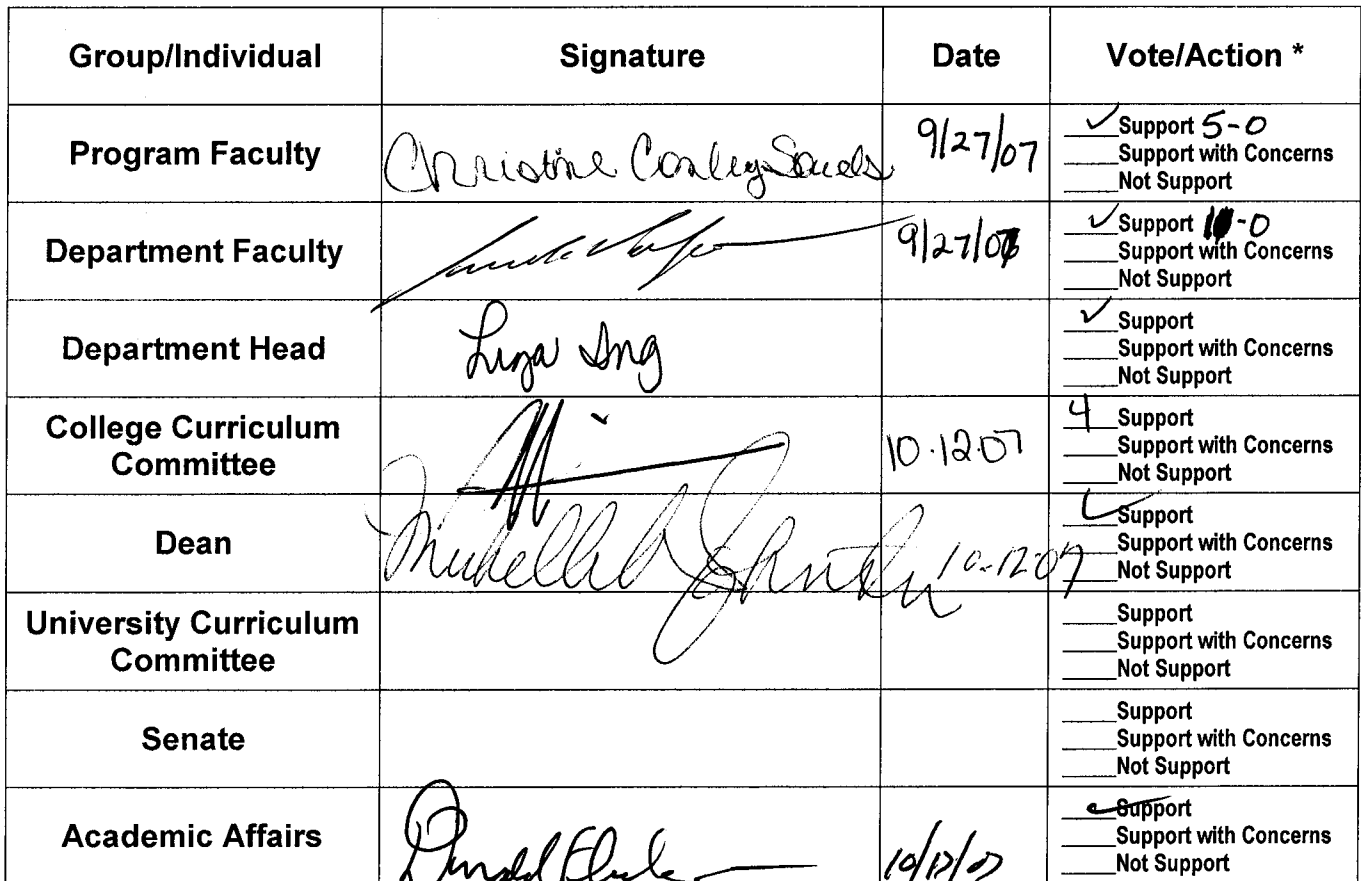 Group/Individual Signature Date Vote/Action *
Program Faculty Christine 9/27/07 ✓ Support 5-0
____Support with Concerns
____Not Support
Department Faculty 9/27/07 ✓ Support -0
____Support with Concerns
____Not Support
Department Head ✓ Support
____Support with Concerns
____Not Support
College Curriculum Committee 10.12.07 4 Support
____Support with Concerns
____Not Support
Dean Johnston 10-12-07 ✓ Support
____Support with Concerns
____Not Support
University Curriculum Committee ____Support
____Support with Concerns
____Not Support
Senate ____Support
____Support with Concerns
____Not Support
Academic Affairs Support
____Support with Concerns
____Not Support